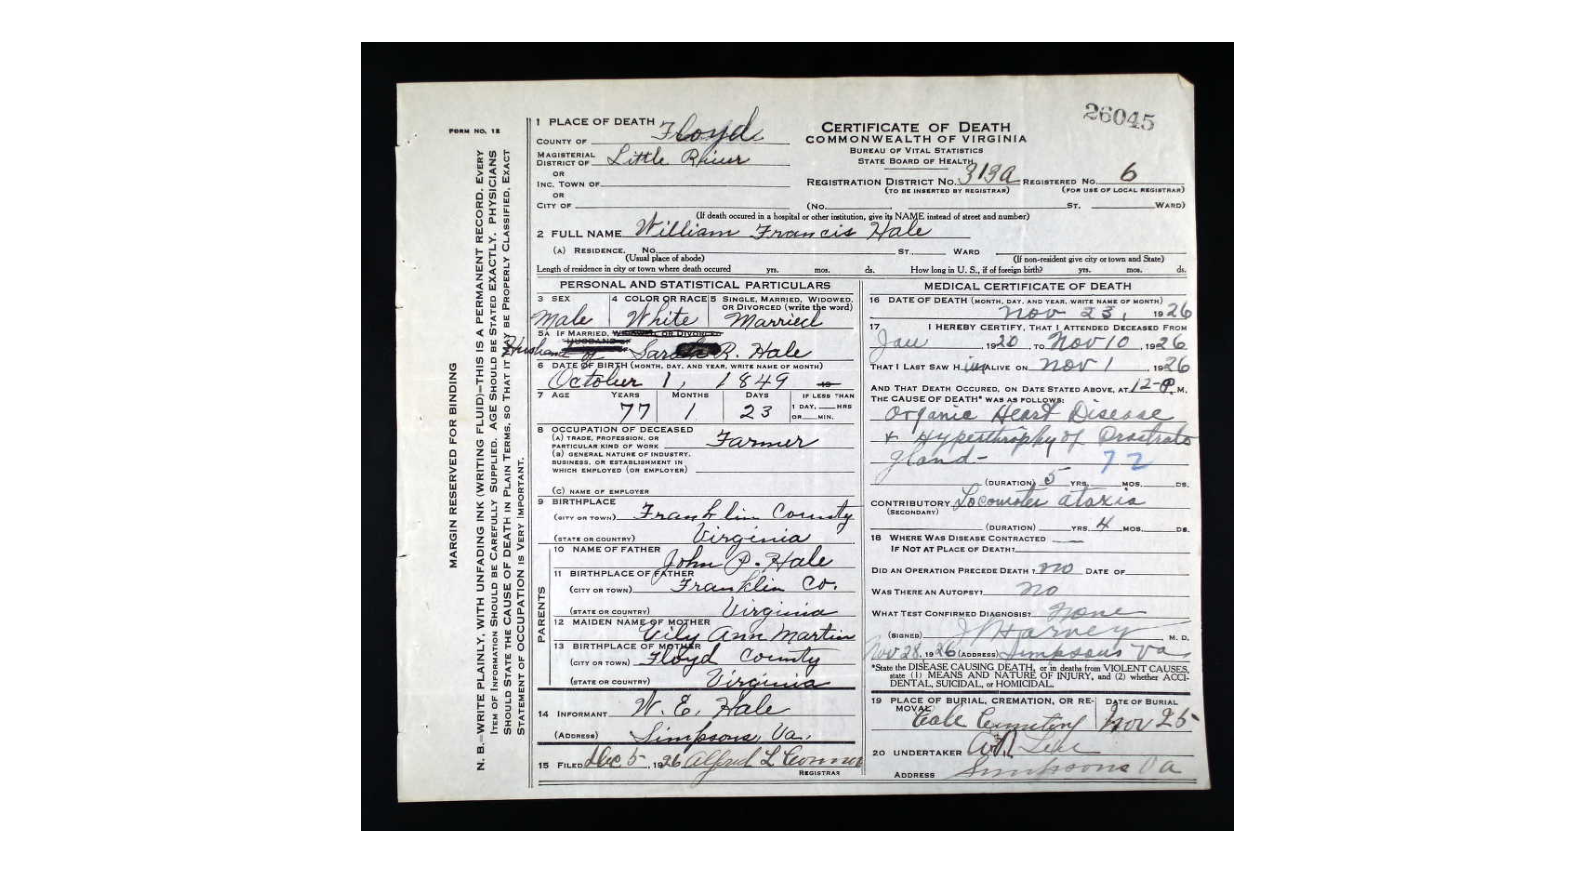 26045
FORM NO. 12
MARGIN RESERVED FOR BINDING
N. B.—WRITE PLAINLY, WITH UNFADING INK (WRITING FLUID)—THIS IS A PERMANENT RECORD. EVERY
ITEM OF INFORMATION SHOULD BE CAREFULLY SUPPLIED. AGE SHOULD BE STATED EXACTLY. PHYSICIANS
SHOULD STATE THE CAUSE OF DEATH IN PLAIN TERMS, SO THAT IT MAY BE PROPERLY CLASSIFIED. EXACT
STATEMENT OF OCCUPATION IS VERY IMPORTANT.
1 PLACE OF DEATH
COUNTY OF Floyd
MAGISTERIAL
DISTRICT OF Little River
OR
INC. TOWN OF
OR
CITY OF
CERTIFICATE OF DEATH
COMMONWEALTH OF VIRGINIA
BUREAU OF VITAL STATISTICS
STATE BOARD OF HEALTH
REGISTRATION DISTRICT NO. 313A REGISTERED NO. 6
(TO BE INSERTED BY REGISTRAR) (FOR USE OF LOCAL REGISTRAR)
(NO. ST. WARD)
(If death occured in a hospital or other institution, give its NAME instead of street and number)
2 FULL NAME William Francis Hale
(A) RESIDENCE. NO. ST. WARD
(Usual place of abode) (If non-resident give city or town and State)
Length of residence in city or town where death occured yrs. mos. ds. How long in U. S., if of foreign birth? yrs. mos. ds.
PERSONAL AND STATISTICAL PARTICULARS
3 SEX 4 COLOR OR RACE 5 SINGLE, MARRIED, WIDOWED,
OR DIVORCED (write the word)
Male White Married
5A IF MARRIED, WIDOWED OR DIVORCED
HUSBAND OF
Husband of Sarah R. Hale
6 DATE OF BIRTH (MONTH, DAY, AND YEAR, WRITE NAME OF MONTH)
October 1, 1849 19
7 AGE YEARS MONTHS DAYS IF LESS THAN
77 1 23 1 DAY, HRS
OR MIN.
8 OCCUPATION OF DECEASED
(A) TRADE, PROFESSION, OR
PARTICULAR KIND OF WORK Farmer
(B) GENERAL NATURE OF INDUSTRY,
BUSINESS, OR ESTABLISHMENT IN
WHICH EMPLOYED (OR EMPLOYER)
(C) NAME OF EMPLOYER
9 BIRTHPLACE
(CITY OR TOWN) Franklin County
(STATE OR COUNTRY) Virginia
PARENTS
10 NAME OF FATHER John P. Hale
11 BIRTHPLACE OF FATHER
(CITY OR TOWN) Franklin Co.
(STATE OR COUNTRY) Virginia
12 MAIDEN NAME OF MOTHER
Ann Martin
13 BIRTHPLACE OF MOTHER
(CITY OR TOWN) Floyd County
(STATE OR COUNTRY) Virginia
14 INFORMANT W. E. Hale
(ADDRESS) Simpsons, Va.
15 FILED Dec 5, 1926 Alfred L Connor
REGISTRAR
MEDICAL CERTIFICATE OF DEATH
16 DATE OF DEATH (MONTH, DAY, AND YEAR, WRITE NAME OF MONTH)
Nov 23, 1926
17 I HEREBY CERTIFY, THAT I ATTENDED DECEASED FROM
Jan, 1920 TO Nov 10, 1926
THAT I LAST SAW H im ALIVE ON Nov 1, 1926
AND THAT DEATH OCCURED, ON DATE STATED ABOVE, AT 12-P.M.
THE CAUSE OF DEATH* WAS AS FOLLOWS:
Organic Heart Disease
+ Hyperthrophy of Prostrate
gland- 72
(DURATION) 5 YRS. MOS. DS.
CONTRIBUTORY Locomoter ataxia
(SECONDARY)
(DURATION) YRS. 4 MOS. DS.
18 WHERE WAS DISEASE CONTRACTED
IF NOT AT PLACE OF DEATH?
DID AN OPERATION PRECEDE DEATH? no DATE OF
WAS THERE AN AUTOPSY? no
WHAT TEST CONFIRMED DIAGNOSIS? none
(SIGNED) Harvey M. D.
Nov 28, 1926 (ADDRESS) Simpsons Va
*State the DISEASE CAUSING DEATH, or in deaths from VIOLENT CAUSES,
state (1) MEANS AND NATURE OF INJURY, and (2) whether ACCI-
DENTAL, SUICIDAL, or HOMICIDAL.
19 PLACE OF BURIAL, CREMATION, OR RE- DATE OF BURIAL
MOVAL Cemetery Nov 25
20 UNDERTAKER
ADDRESS Simpsons Va